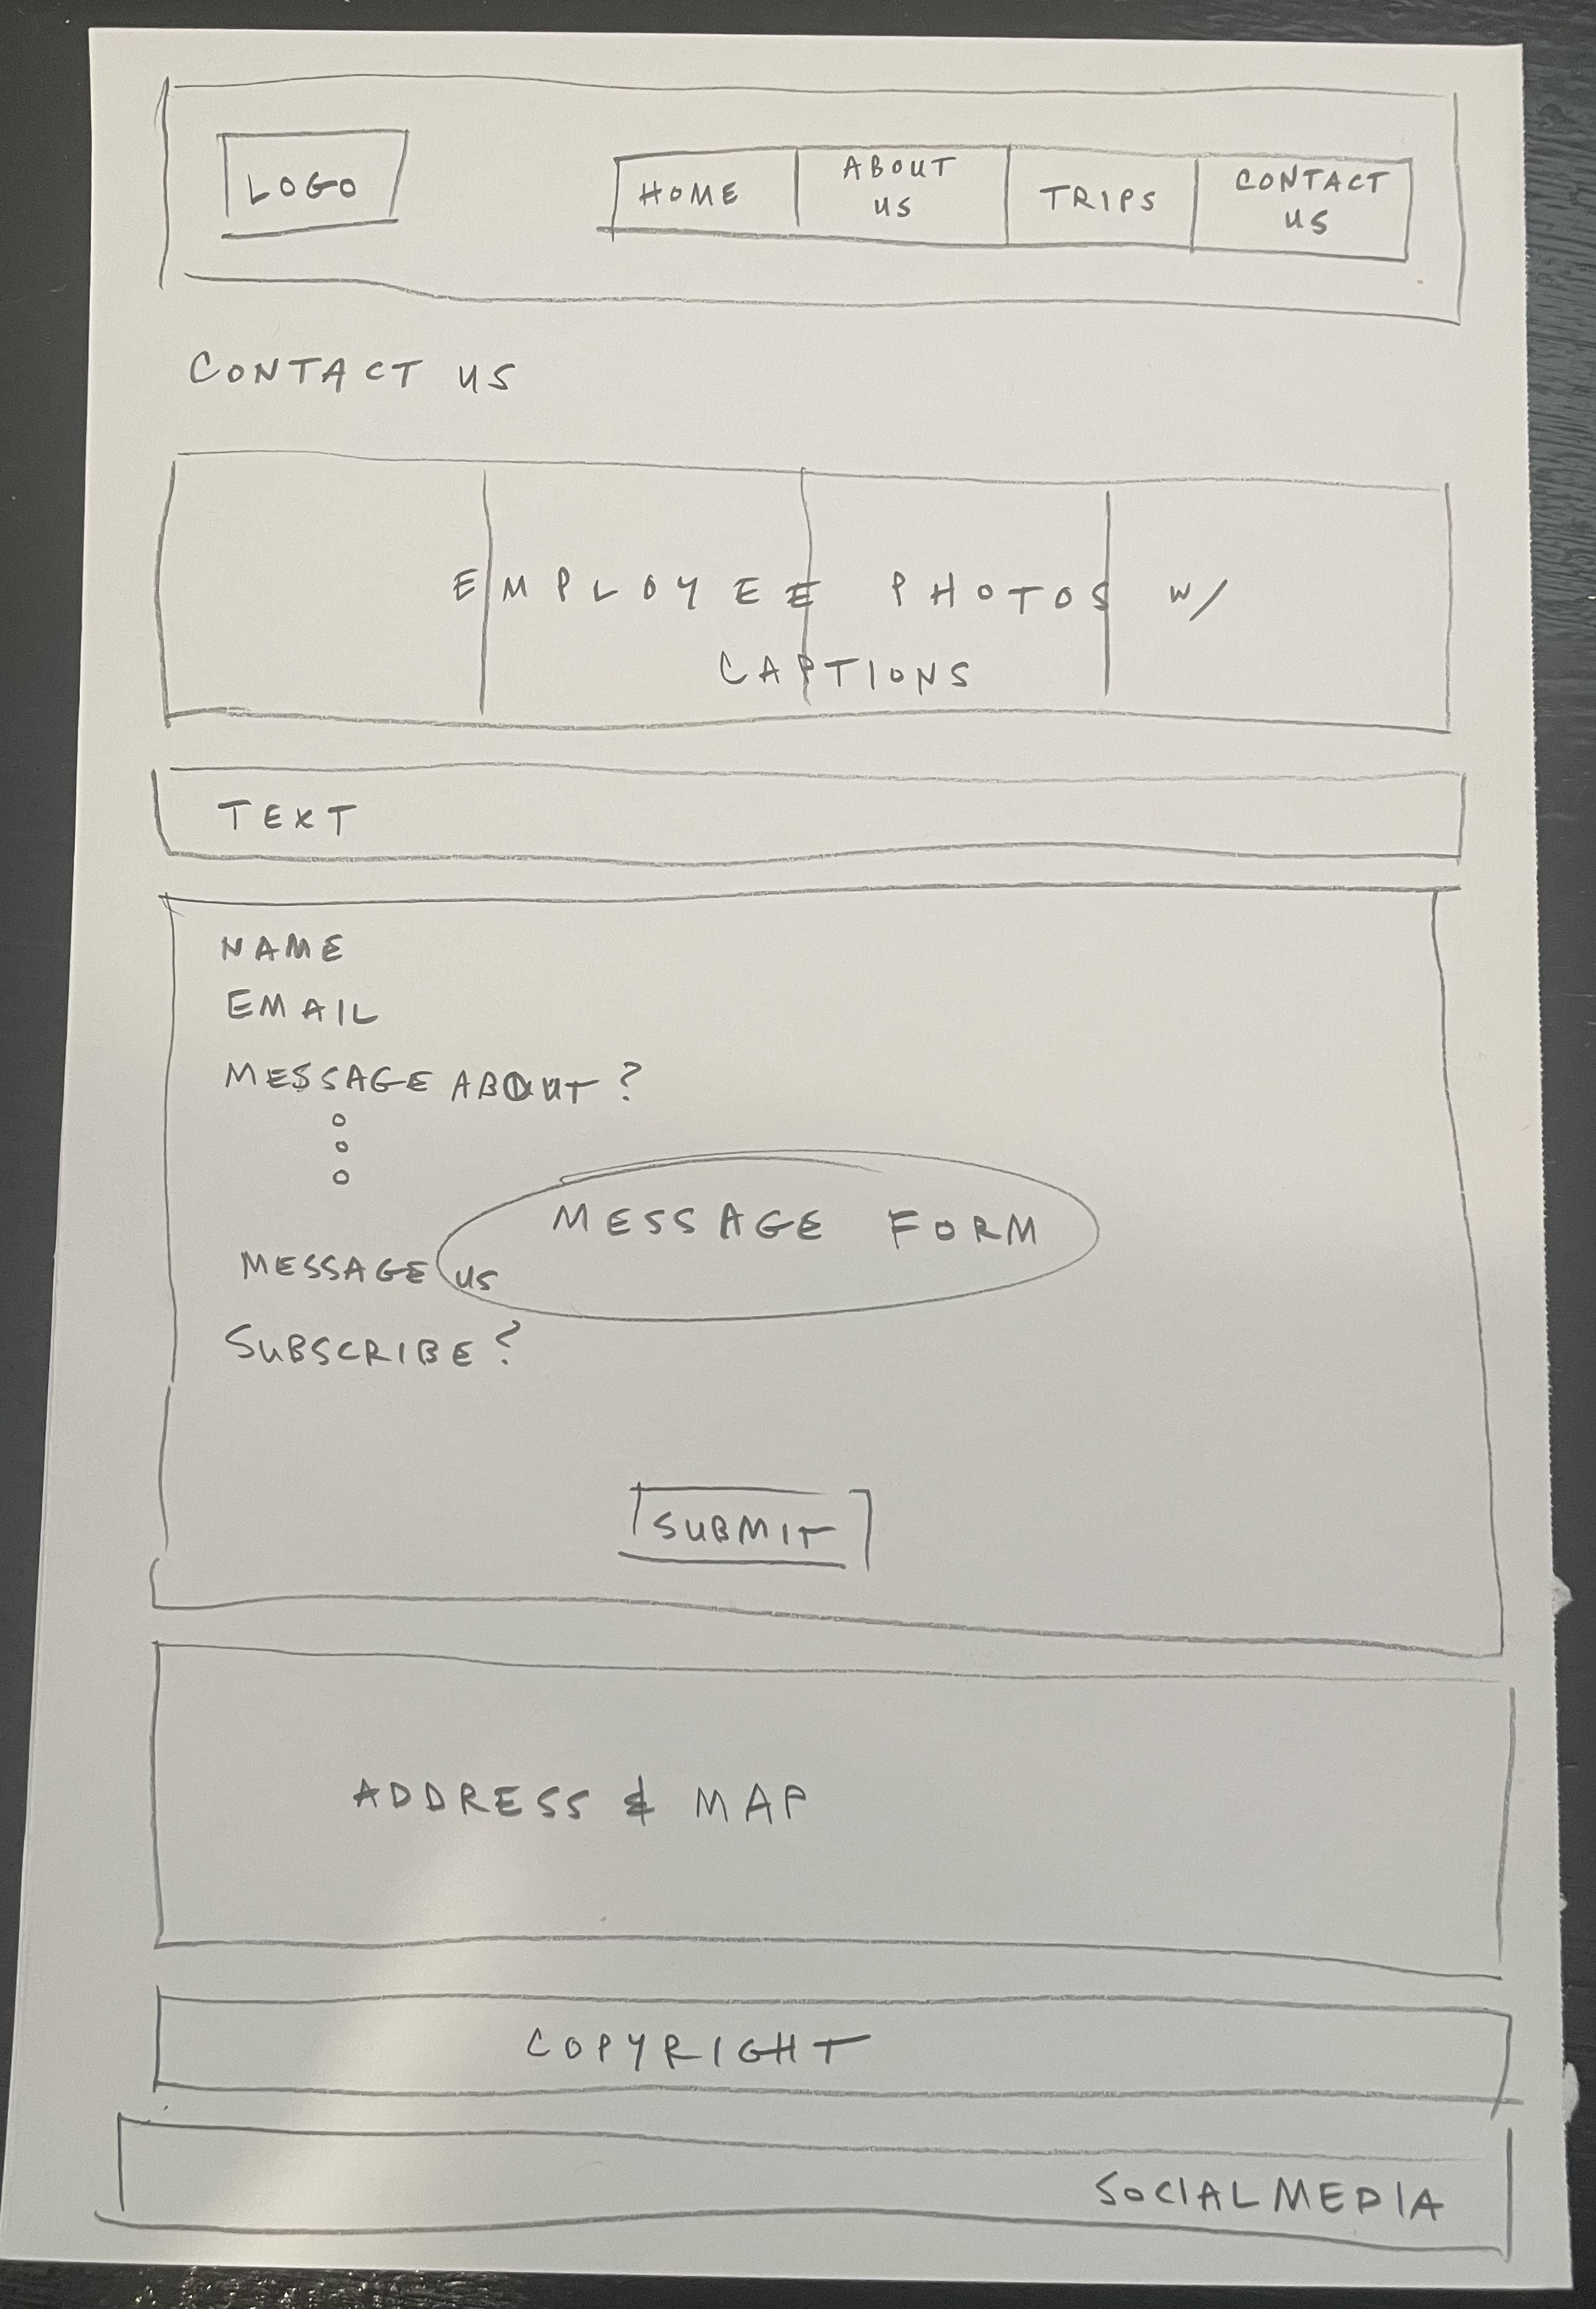 LOGO
HOME
ABOUT
US
TRIPS
CONTACT
US
CONTACT US
EMPLOYEE PHOTOS W/
CAPTIONS
TEXT
NAME
EMAIL
MESSAGE ABOUT?
MESSAGE FORM
MESSAGE US
SUBSCRIBE?
SUBMIT
ADDRESS & MAP
COPYRIGHT
SOCIAL MEDIA